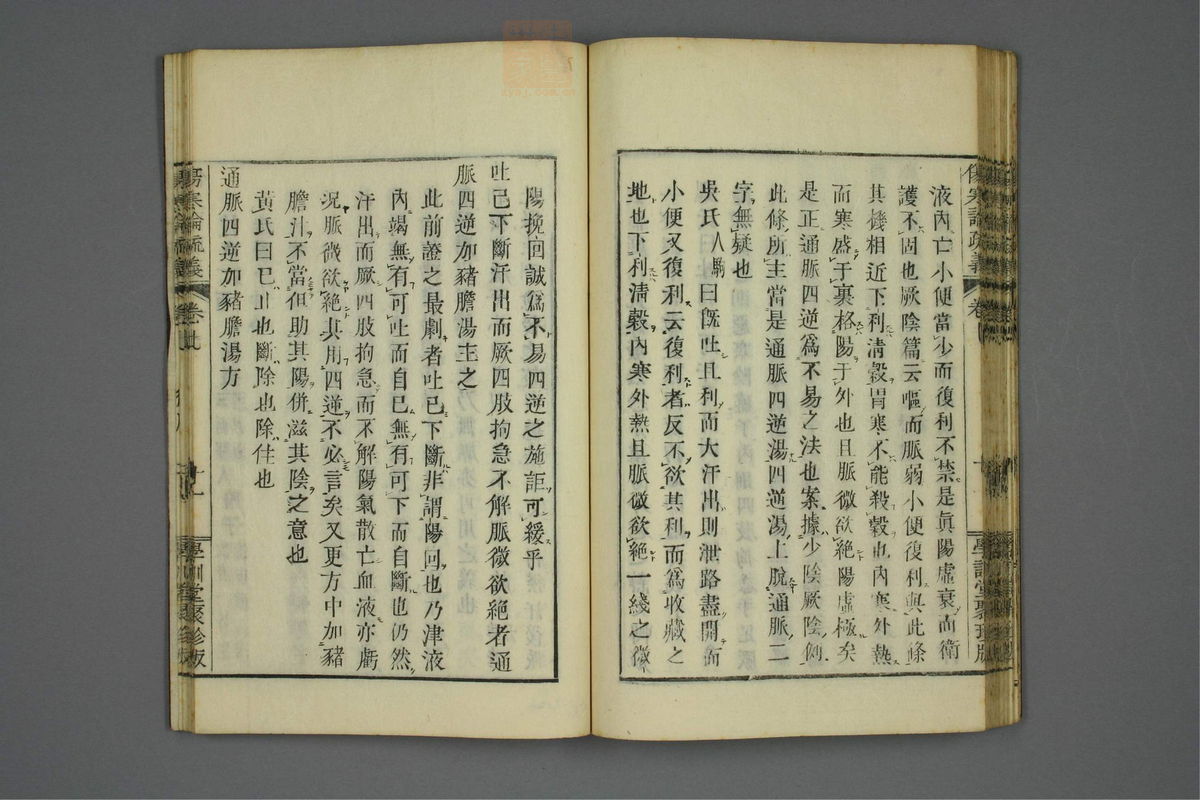 液內亡小便當少而復利不禁是眞陽虛衰而衛
護不固也厥陰篇云嘔而脈弱小便復利與此條
其機相近下利淸穀胃寒不能殺穀也內寒外熱
而寒盛于裏格陽于外也且脈微欲絕陽虛極矣
是正通脈四逆爲不易之法也案據少陰厥陰例
此條所主當是通脈四逆湯四逆湯上脫通脈二
字無疑也
吳氏人駒曰旣吐且利而大汗出則泄路盡開而
小便又復利云復利者反不欲其利而爲收藏之
地也下利淸穀內寒外熱且脈微欲絕一綫之微
陽挽回誠爲不易四逆之施詎可緩乎
吐已下斷汗出而厥四肢拘急不解脈微欲絕者通
脈四逆加豬膽湯主之
此前證之最劇者吐已下斷非謂陽回也乃津液
內竭無有可吐而自已無有可下而自斷也仍然
汗出而厥四肢拘急而不解陽氣散亡血液亦虧
況脈微欲絕其用四逆不必言矣又更方中加豬
膽汁不當但助其陽併滋其陰之意也
黃氏曰已止也斷除也除住也
通脈四逆加豬膽湯方
傷寒論疏義
卷第七
學訓堂聚珍版